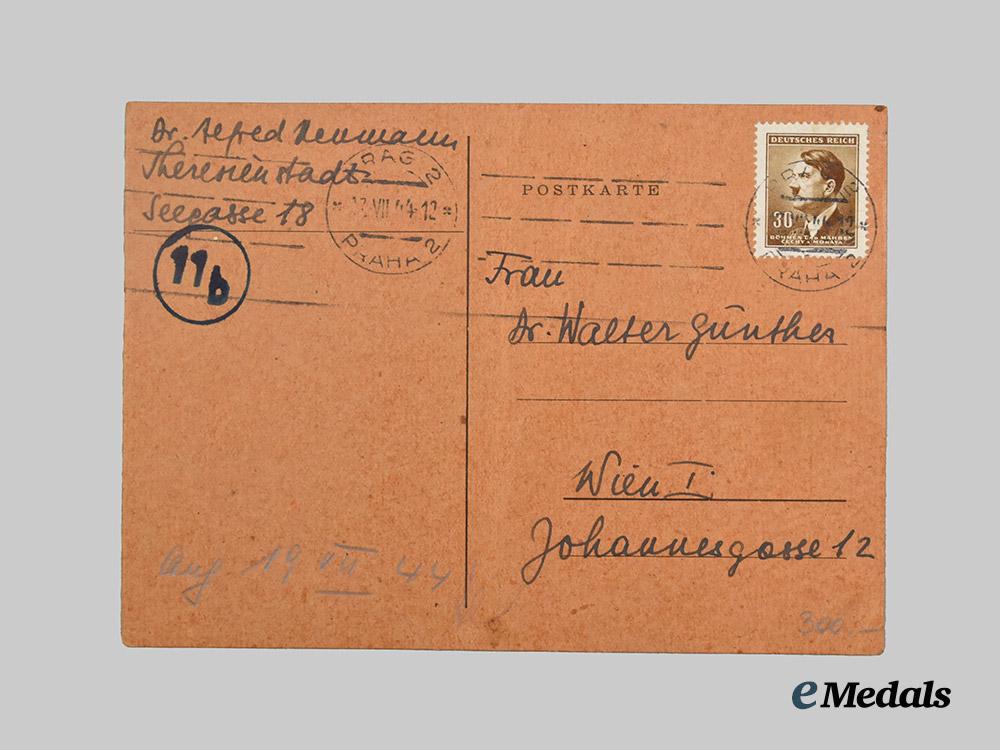 Dr. Alfred Neumann
Theresienstadt
Seegasse 18
11b
PRAG 2
VII 44-12
PRAHA 2
POSTKARTE
DEUTSCHES REICH
30
BÖHMEN UND MÄHREN
ČECHY A MORAVA
PRAHA 2
Frau
Dr. Walter Günther
Wien I.
Johannesgasse 12
19 VII 44
300.—
eMedals